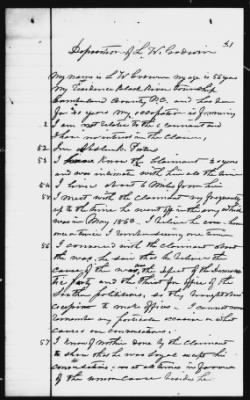 31
Deposition of L. W. Godwin
My name is L W Godwin my age is 55 years
My residence Black River Township
Cumberland County N.C. and has been
for 20 years My occupation is farming
2 I am not related to the claimant and
no interest in the claim,
52 I know the Claimant 20 years
and was intimate with him all the time
54 I live about 6 miles from him
55 I met with the claimant very frequently
up to the time he went off in the army which
was in May 1862. I believe he come home
one time
56 I conversed with the claimant about
the war, he said that he believed the
cause of the war, the defeat of the Democratic
Party and the thirst for office of the
Southern politicians, so they brought on
to most offices. I cannot now
remember any particular occasion or what
causes or conversations.
57 I know of nothing done by the Claimant
to show that he was loyal except his
conversations, was at all times in favor
of the Union cause besides he